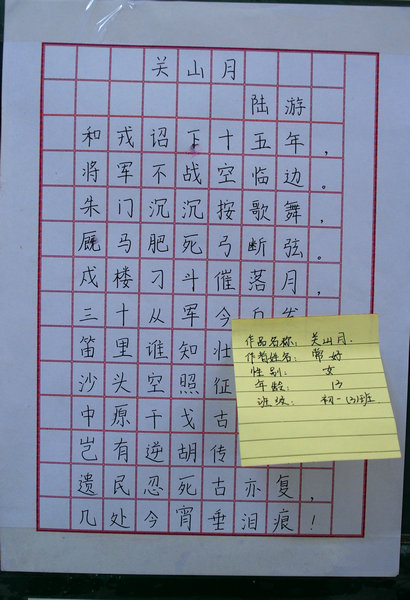 关山月
陆游
和戎诏下十五年，
将军不战空临边。
朱门沉沉按歌舞，
厩马肥死弓断弦。
戍楼刁斗催落月，
三十从军今白发
笛里谁知壮
沙头空照征
中原干戈古
岂有逆胡传
遗民忍死古亦复，
几处今宵垂泪痕！
作品名称：关山月.
作者姓名：常好
性别：女
年龄：13
班级：初一（3）班.